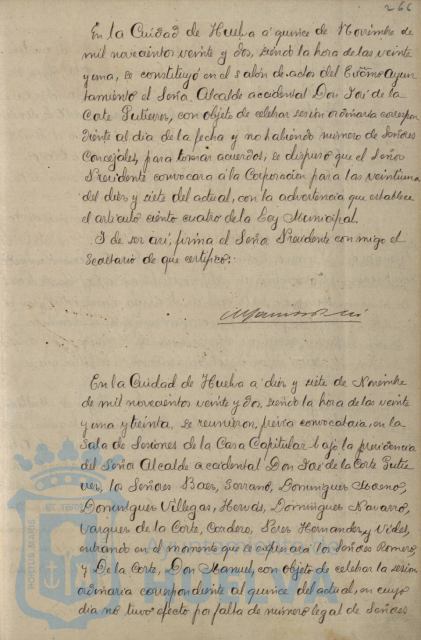 266
En la Ciudad de Huelva a quince de Noviembre de
mil novecientos veinte y dos, siendo la hora de las veinte
y una, se constituyó en el salón de actos del Excmo Ayun
tamiento el Señor Alcalde accidental Don José de la
Corte Gutierrez, con objeto de celebrar sesion ordinaria correspon
diente al dia de la fecha y no habiendo numero de Señores
Concejales, para tomar acuerdos, se dispuso que el Señor
Presidente convocara a la Corporación para las veintiuna
del diez y siete del actual, con la advertencia que establece
el articulo ciento cuatro de la Ley Municipal.
Y de ser asi, firma el Señor Presidente conmigo el
Secretario de que certifico:
En la Ciudad de Huelva a diez y siete de Noviembre
de mil novecientos veinte y dos, siendo la hora de las veinte
y una y treinta, se reunieron, previa convocatoria, en la
Sala de Sesiones de la Casa Capitular bajo la presidencia
del Señor Alcalde accidental Don José de la Corte Gutie
rrez, los Señores Baez, Serrano, Dominguez
Dominguez Villegas, Hervás, Dominguez Navarro,
Vazquez de la Corte, Cordero, Perez Hernandez y Vides,
entrando en el momento que se expresará los Señores Romero
y De la Corte, Don Manuel, con objeto de celebrar la sesion
ordinaria correspondiente al quince del actual, en cuyo
dia no tuvo efecto por falta de numero legal de Señores
PORTUS MARIS
Ayuntamiento de
HUELVA